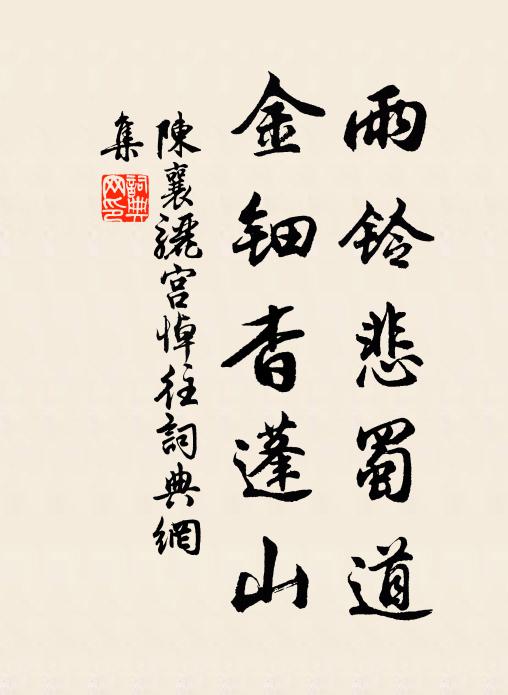 雨鈴悲蜀道
金鈿杳蓬山
陳襄驪宮悼往詞典網
集
詞典
网印